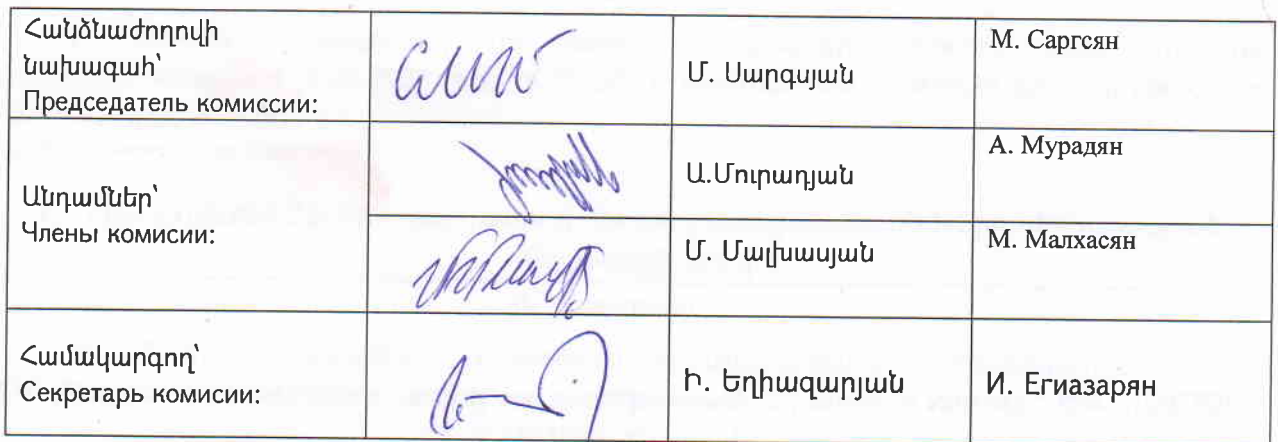 Հանձնաժողովի
նախագահ՝
Председатель комиссии:
Մ. Սարգսյան
М. Саргсян
Անդամներ՝
Члены комисии:
Ա.Մուրադյան
А. Мурадян
Մ. Մալխասյան
М. Малхасян
Համակարգող՝
Секретарь комисии:
Ի. Եղիազարյան
И. Егиазарян